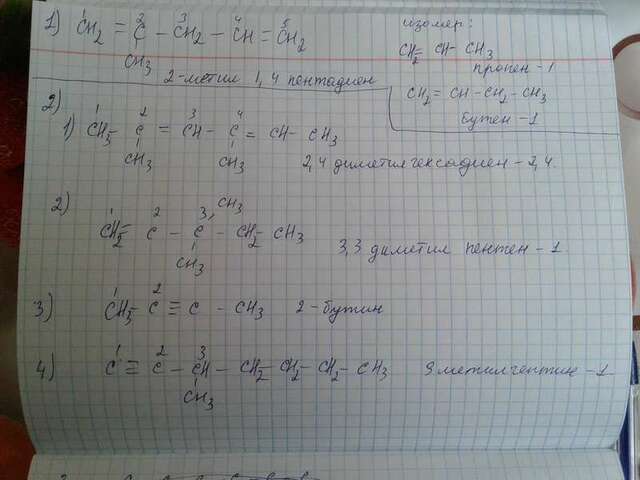 1) CH2 = C - CH2 - CH = CH2
1 2 3 4 5
CH3
2-метил 1,4 пентадиен
изомер:
CH2= CH- CH3
пропен-1
CH2= CH-CH2-CH3
бутен-1
2)
1) CH3- C = CH - C = CH - CH3
1 2 3 4
CH3 CH3
2,4 диметилгексадиен-2,4.
2) CH2= C - C - CH2- CH3
1 2 3
CH3
CH3
3,3 диметил пентен-1.
3) CH3- C ≡ C - CH3 2-бутин
1 2
4) C ≡ C - CH - CH2- CH2- CH2- CH3 3 метилгептин-1
1 2 3
CH3